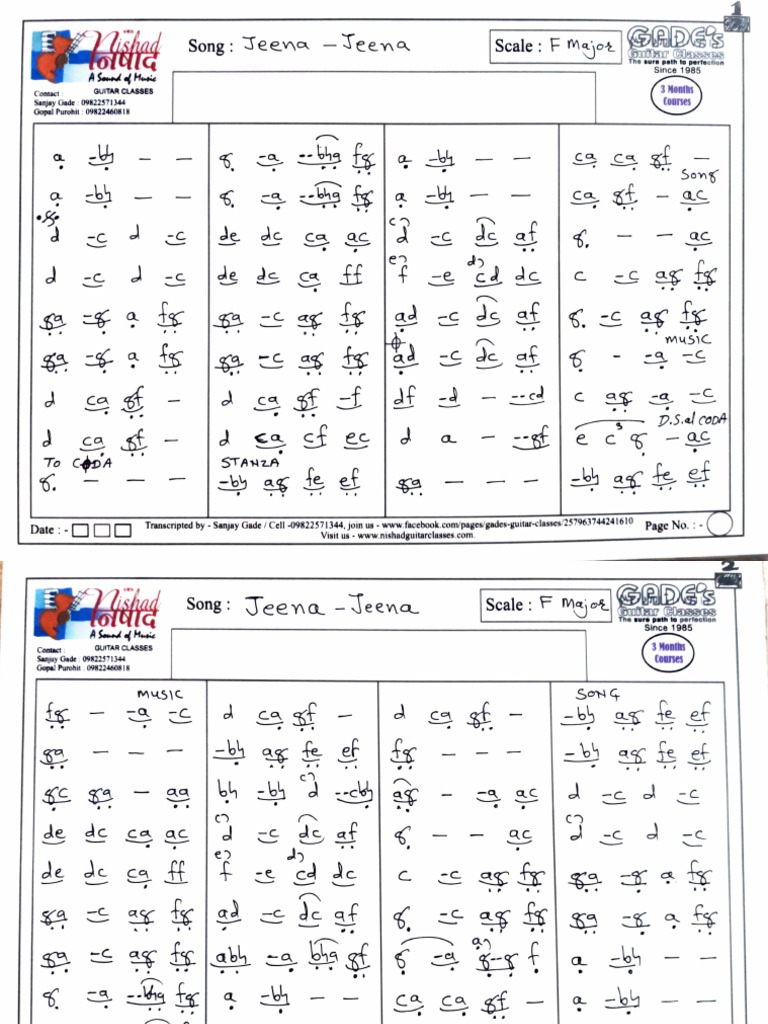 1
Nishad
निषाद
A Sound of Music
GUITAR CLASSES
Contact :
Sanjay Gade : 09822571344
Gopal Purohit : 09822460818
Song : Jeena - Jeena
Scale : F Major
GADE's
Guitar Classes
The sure path to perfection
Since 1985
3 Months
Courses
a -bh - - g -a --bhg fg a -bh - - ca ca gf -
Song
a -bh - - g -a --bhg fg a -bh - - ca gf - ac
d -c d -c de dc ca ac c) d -c dc af g - - ac
d -c d -c de dc ca ff e) f -e d) cd dc c -c ag fg
ga -g a fg ga -c ag fg ad -c dc af g -c ag fg
MUSIC
ga -g a fg ga -c ag fg ad -c dc af g - -a -c
d ca gf - d ca gf -f df -d - --cd c ag -a -c
D.S. al CODA
d ca gf - d ca cf ec d a - --gf e c 3 g - ac
TO CODA STANZA
g - - - -bh ag fe ef ga - - - -bh ag fe ef
Date : - Transcribed by - Sanjay Gade / Cell -09822571344, join us - www.facebook.com/pages/gades-guitar-classes/257963744241610 Page No. : -
Visit us - www.nishadguitarclasses.com.
2
Nishad
निषाद
A Sound of Music
GUITAR CLASSES
Contact :
Sanjay Gade : 09822571344
Gopal Purohit : 09822460818
Song : Jeena - Jeena
Scale : F Major
GADE's
Guitar Classes
The sure path to perfection
Since 1985
3 Months
Courses
MUSIC SONG
fg - -a -c d ca gf - d ca gf - -bh ag fe ef
ga - - - -bh ag fe ef fg - - - -bh ag fe ef
gc ga - aa bh -bh c) d --cbh ag - -a ac d -c d -c
de dc ca ac c) d -c dc af g - - ac c) d -c d -c
de dc ca ff e) f -e d) cd dc c -c ag fg ga -g a fg
ga -c ag fg ad -c dc af g -c ag fg ga -g a fg
ga -c ag fg abh -a bhg gf g -a a) g--g f a -bh - -
g -a --bhg fg a -bh - - ca ca gf - a -bh - -